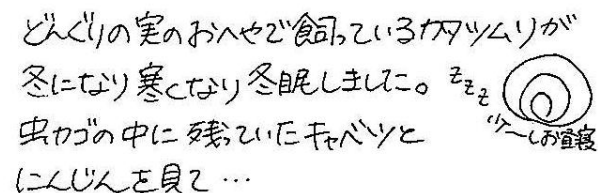 どんぐりの実のおへやで飼っているカタツムリが
冬になり寒くなり冬眠しました。
zzz
虫カゴの中に残っていたキャベツと
にんじんを見て…
お昼寝